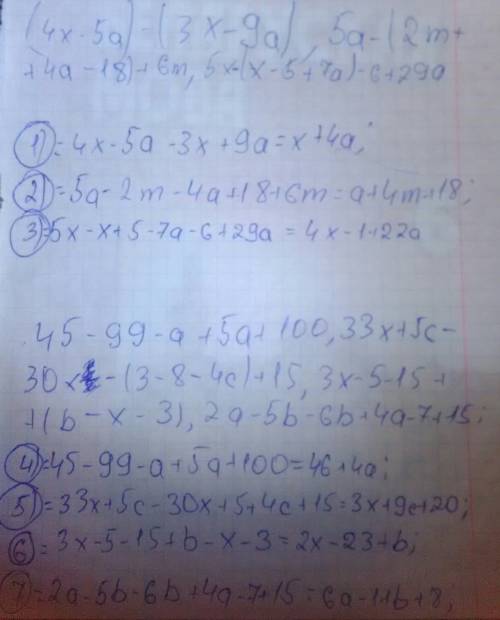 (4x-5a)-(3x-9a), 5a-(2m+
+4a-18)+6m, 5x-(x-5+7a)-6+29a
1)=4x-5a-3x+9a=x+4a;
2)=5a-2m-4a+18+6m=a+4m+18;
3)=5x-x+5-7a-6+29a=4x-1+22a
45-99-a+5a+100, 33x+5c-
30x-(3-8-4c)+15, 3x-5-15+
+(b-x-3), 2a-5b-6b+4a-7+15;
4)=45-99-a+5a+100=46+4a;
5)=33x+5c-30x+5+4c+15=3x+9c+20;
6=3x-5-15+b-x-3=2x-23+b;
7=2a-5b-6b+4a-7+15=6a-11b+8;